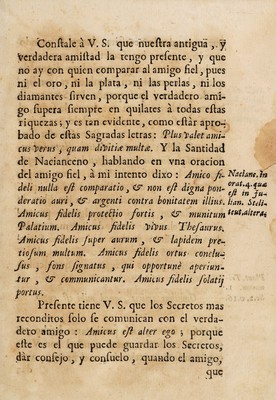 Constale à V. S. que nuestra antigua, y
verdadera amistad la tengo presente, y que
no ay con quien comparar al amigo fiel, pues
ni el oro, ni la plata, ni las perlas, ni los
diamantes sirven, porque el verdadero ami-
go supera siempre en quilates à todas estas
riquezas; y es tan evidente, como estàr apro-
bado de estas Sagradas letras: Plus valet ami-
cus verus, quam divitiæ multæ. Y la Santidad
de Nacianceno, hablando en vna oracion
del amigo fiel, à mi intento dixo: Amico fi-
deli nulla est comparatio, & non est digna pon-
deratio auri, & argenti contra bonitatem illius.
Amicus fidelis protectio fortis, & munitum
Palatium. Amicus fidelis vivus Thesaurus.
Amicus fidelis super aurum, & lapidem pre-
tiosum multum. Amicus fidelis ortus conclu-
sus, fons signatus, qui opportunè aperiun-
tur, & communicantur. Amicus fidelis solatij
portus.
Nacianc. in
orat. 4. quæ
est in Ju-
lian. Steli-
teut, altera;
Presente tiene V. S. que los Secretos mas
reconditos solo se comunican con el verda-
dero amigo: Amicus est alter ego; porque
este es el que puede guardar los Secretos,
dàr consejo, y consuelo, quando el amigo,
que